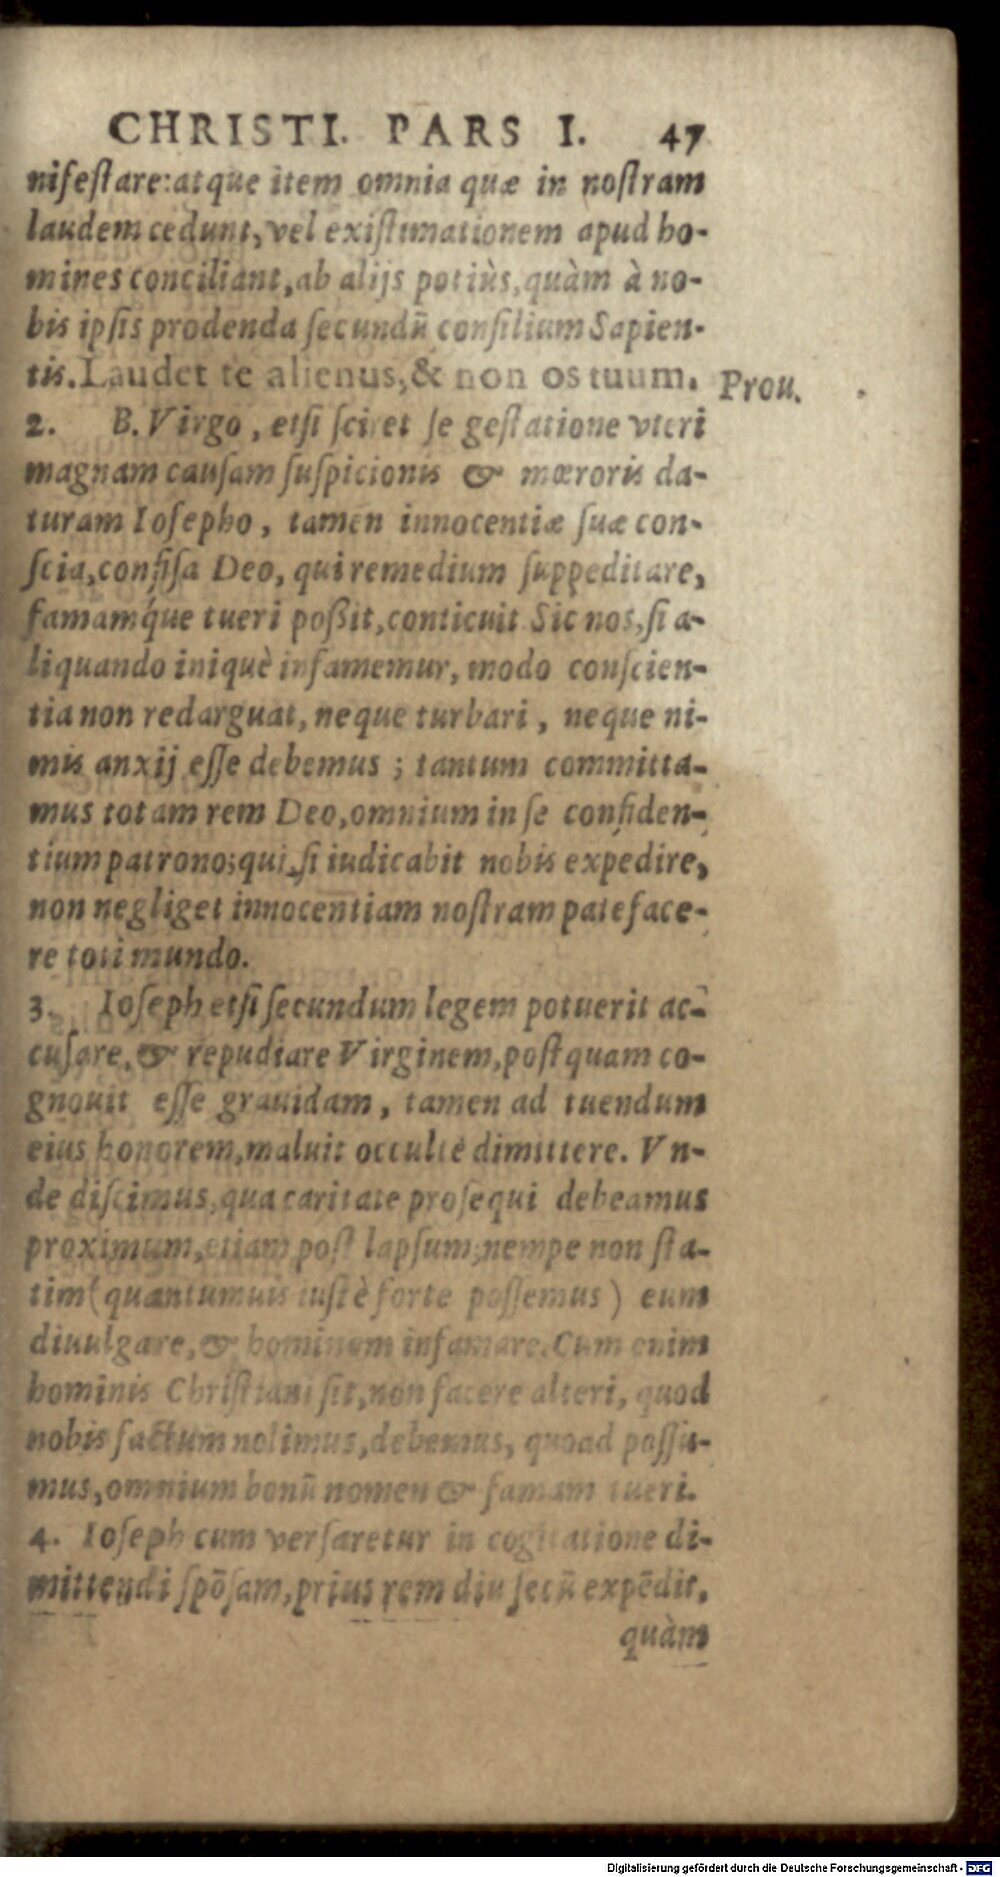 CHRISTI. PARS I. 47
nifeſtare: atque item omnia quæ in noſtram
laudem cedunt, vel exiſtimationem apud ho-
mines conciliant, ab alijs potiùs, quàm à no-
bis ipſis prodenda ſecundū conſilium Sapien-
tis. Laudet te alienus, & non os tuum. Prou.
2. B. Virgo, etſi ſciret ſe geſtatione vteri
magnam cauſam ſuſpicionis & mœroris da-
turam Ioſepho, tamen innocentiæ ſuæ con-
ſcia, confiſa Deo, qui remedium ſuppeditare,
famamq́ue tueri poßit, conticuit. Sic nos, ſi a-
liquando iniquè infamemur, modo conſcien-
tia non redarguat, neque turbari, neque ni-
mis anxij eſſe debemus; tantum committa-
mus totam rem Deo, omnium in ſe confiden-
tium patrono; qui, ſi iudicabit nobis expedire,
non negliget innocentiam noſtram pateface-
re toti mundo.
3. Ioſeph etſi ſecundum legem potuerit ac-
cuſare, & repudiare Virginem, poſtquam co-
gnouit eſſe grauidam, tamen ad tuendum
eius honorem, maluit occultè dimittere. Vn-
de diſcimus, qua caritate proſequi debeamus
proximum, etiam poſt lapſum; nempe non ſta-
tim (quantumuis iuſtè forte poſſemus) eum
diuulgare, & hominem infamare. Cum enim
hominis Chriſtiani ſit, non facere alteri, quod
nobis factum nolimus, debemus, quoad poſſu-
mus, omnium bonū nomen & famam tueri.
4. Ioſeph cum verſaretur in cogitatione di-
mittendi ſpōſam, prius rem diu ſecū expēdit,
quàm
Digitalisierung gefördert durch die Deutsche Forschungsgemeinschaft - DFG